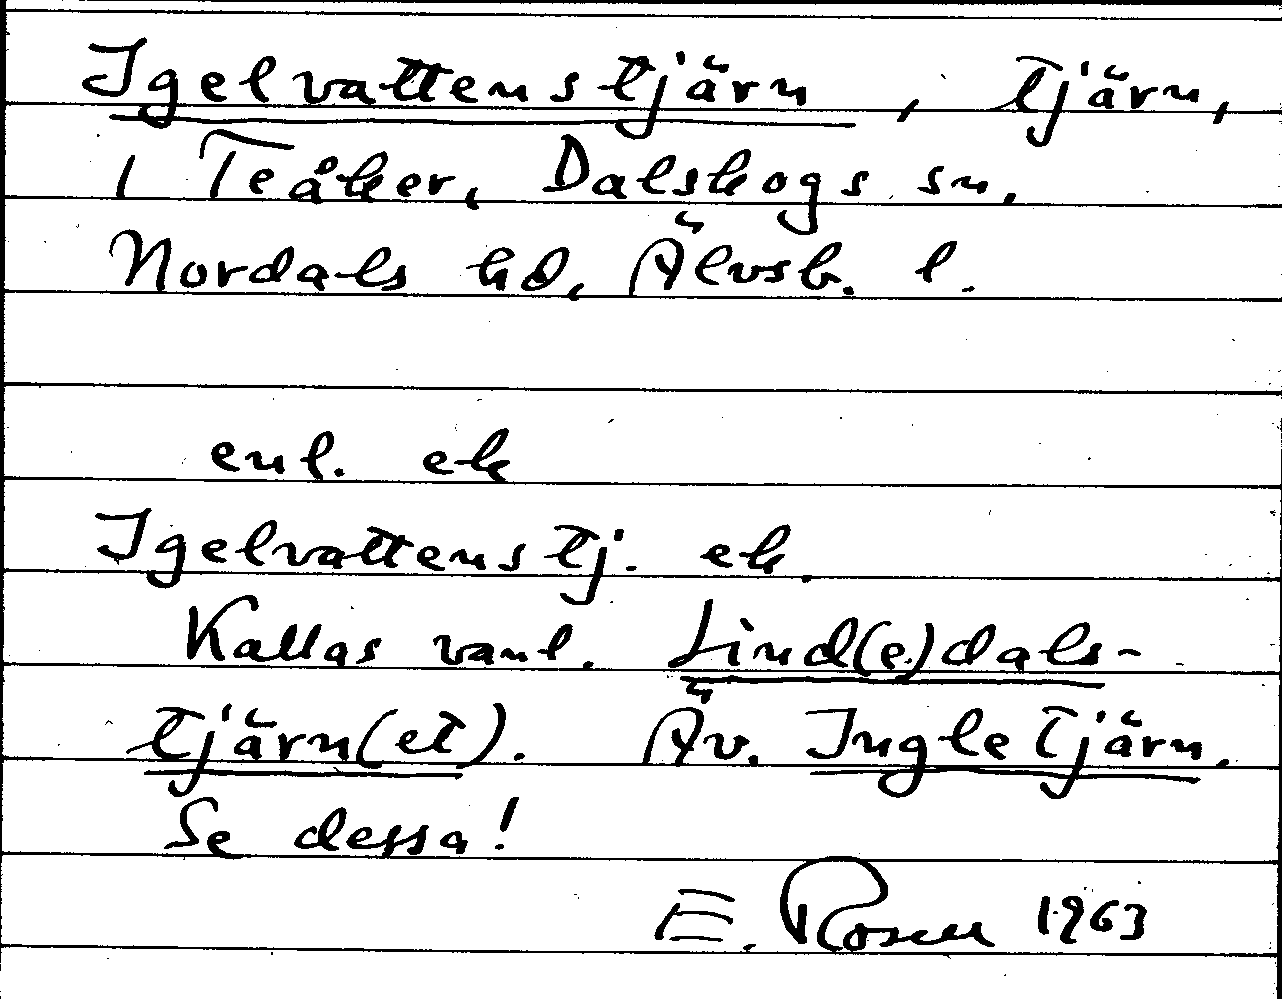 Igelvattenstjärn, tjärn,
i Teåker, Dalskogs sn,
Nordals hd, Älvsb. l.
enl. ek
Igelvattenstj. ek.
Kallas vanl. Lind(e)dals-
tjärn(et). Äv. Ingletjärn.
Se dessa!
E. Rosen 1963